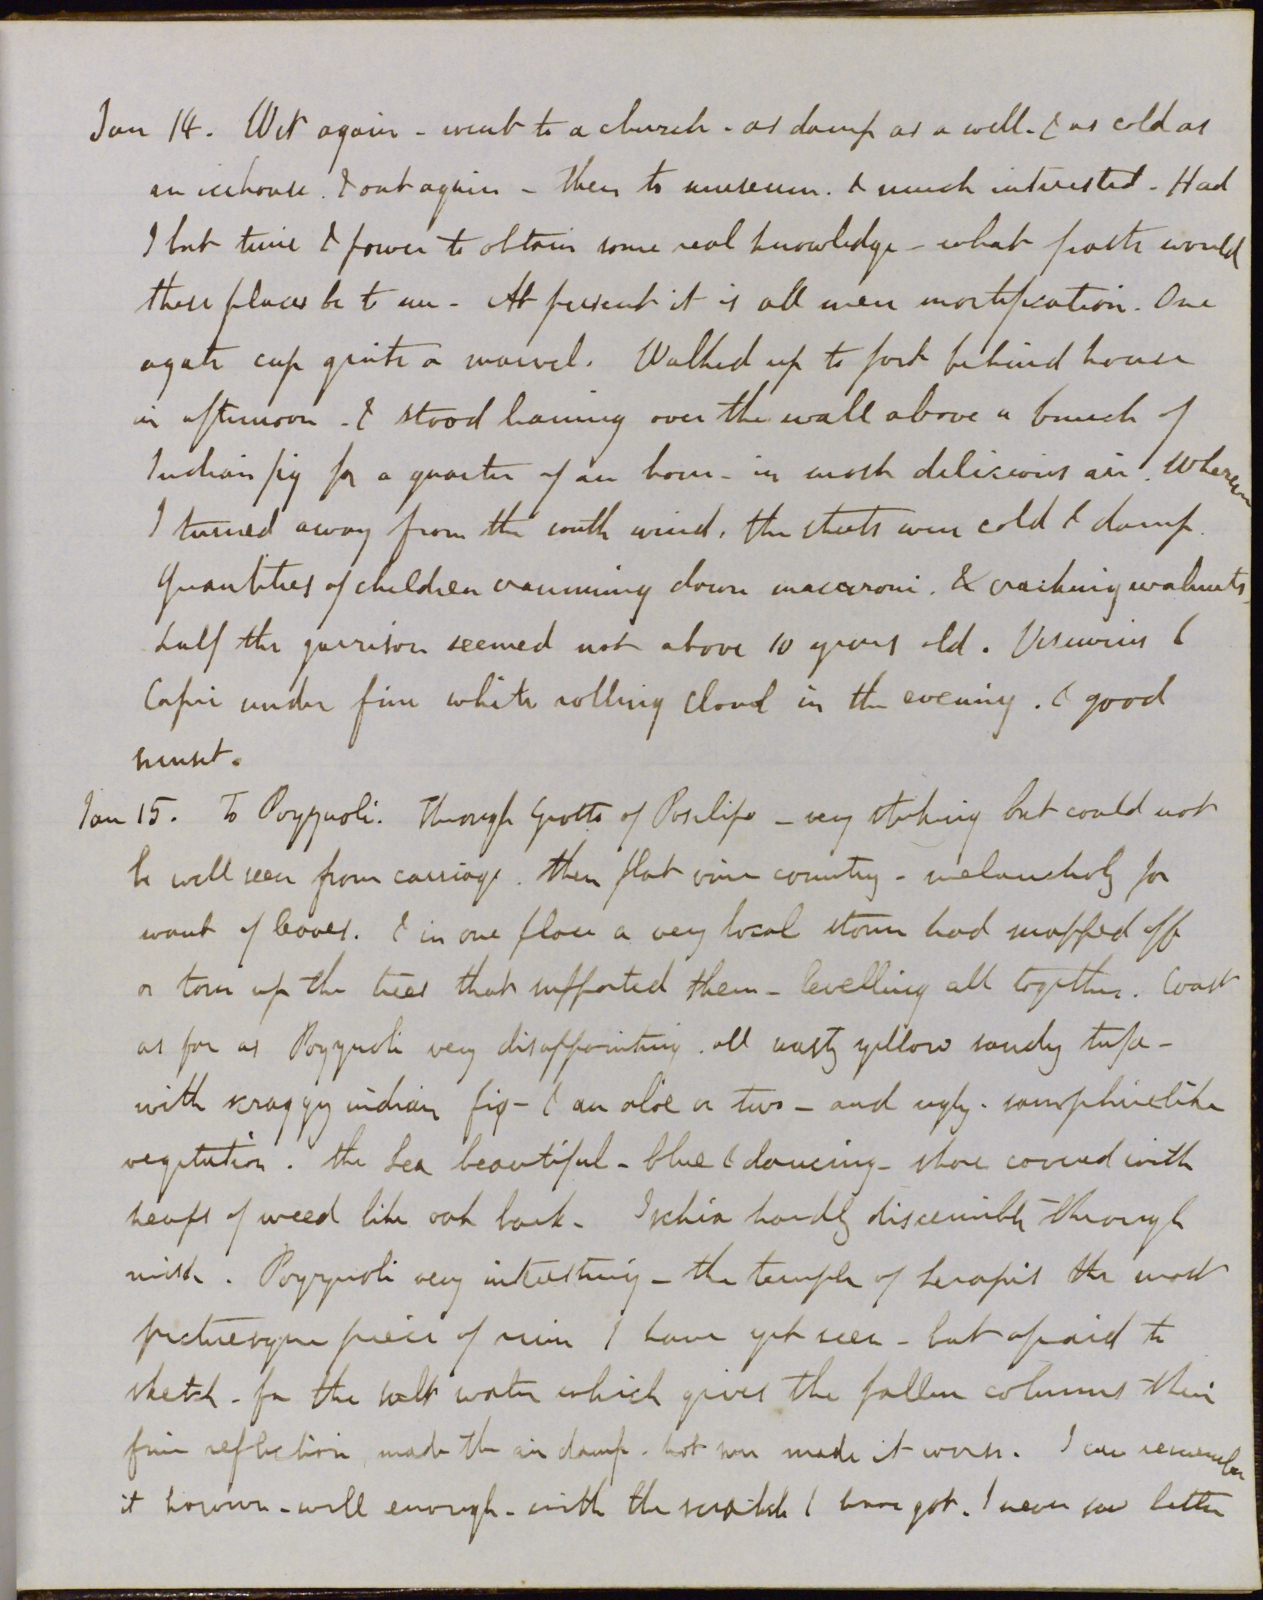 Jan 14. Wet again - went to a church - as damp as a well - & as cold as
an icehouse. & out again - then to museum. & much interested - Had
I but time & power to obtain some real knowledge - what posts would
these places be to me - At present it is all mere mortification. One
agate cup quite a marvel. Walked up to fort behind house
in afternoon - & stood leaning over the wall above a bunch of
Indian fig for a quarter of an hour - in most delicious air. Whenever
I turned away from the south wind, the streets were cold & damp.
Quantities of children cramming down maccaroni. & cracking walnuts,
half the garrison seemed not above 10 years old. Vesuvius &
Capri under fine white rolling cloud in the evening. & good
sunset.
Jan 15. To Pozzuoli. Through Grotto of Posilipo - very striking but could not
be well seen from carriage. then flat vine country - melancholy for
want of leaves. & in one place a very local storm had snapped off
or torn up the trees that supported them - levelling all together. Coast
as far as Pozzuoli very disappointing. all nasty yellow sandy tufa -
with scraggy indian fig - & an aloe or two - and ugly - samphirelike
vegetation. the Sea beautiful - blue & dancing - shore covered with
heaps of weed like oak bark - Ischia hardly discernible through
mist. Pozzuoli very interesting - the temple of Serapis the most
picturesque piece of ruin I have yet seen - but afraid to
sketch - for the salt water which gives the fallen columns their
fine reflection, made the air damp - hot sun made it worse. I can remember
it however - well enough - with the scratch I have got. I never saw better